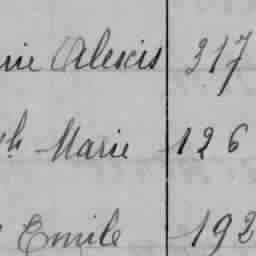 Alexis 317
Marie 126
Emile 192